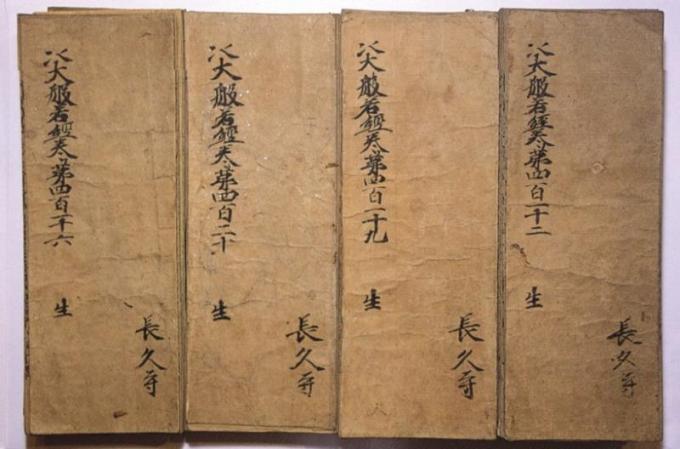 大般若經卷第四百一十二
生
長久寺
大般若經卷第四百一十九
生
長久寺
大般若經卷第四百二十
生
長久寺
大般若經卷第四百一十六
生
長久寺